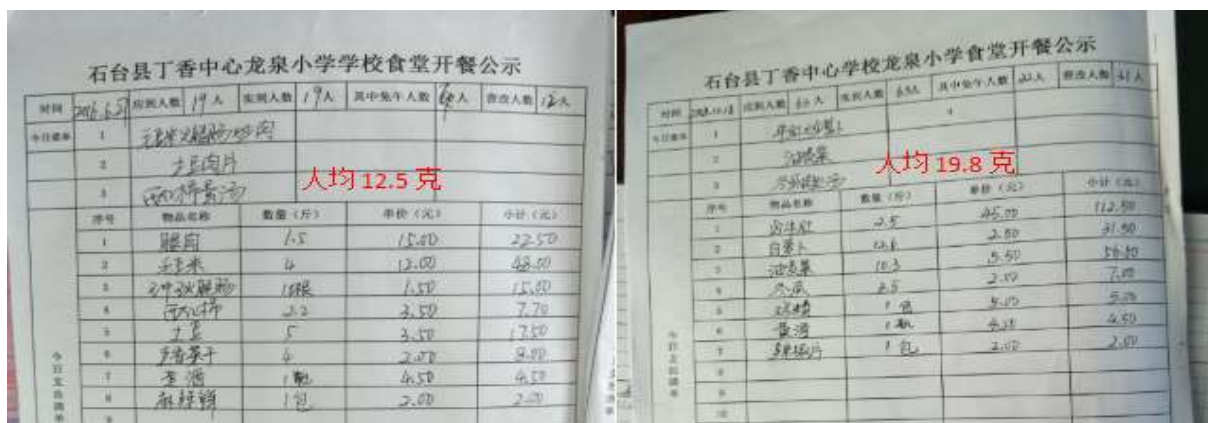 石台县丁香中心龙泉小学学校食堂开餐公示
时间 2018.6.21 应到人数 19人 实到人数 19人 其中免午人数 人 营改人数 12人
今日菜单 1 玉米火腿肠炒肉
2 土豆肉片
3 西红柿蛋汤
人均12.5克
序号 物品名称 数量(斤) 单价(元) 小计(元)
1 腿肉 1.5 15.00 22.50
2 玉米 4 12.00 48.00
3 火腿肠 10根 1.50 15.00
4 西红柿 2.2 3.50 7.70
5 土豆 5 3.50 17.50
6 干 4 2.00 8.00
7 黄酒 1瓶 4.50 4.50
8 麻辣鲜 1包 2.00 2.00
9
今日支出清单
石台县丁香中心学校龙泉小学食堂开餐公示
时间 应到人数 63人 实到人数 63人 其中免午人数 22人 营改人数 41人
今日菜单 1
2 油麦菜
3 汤
人均19.8克
序号 物品名称 数量(斤) 单价(元) 小计(元)
1 2.5 45.00 112.50
2 白萝卜 12.6 2.50 31.50
3 油麦菜 10.3 5.50 56.50
4 冬瓜 3.5 2.00 7.00
5 1包 5.00 5.00
6 黄酒 1瓶 4.50 4.50
7 辣椒片 1包 2.00 2.00
8
9
10
今日支出清单